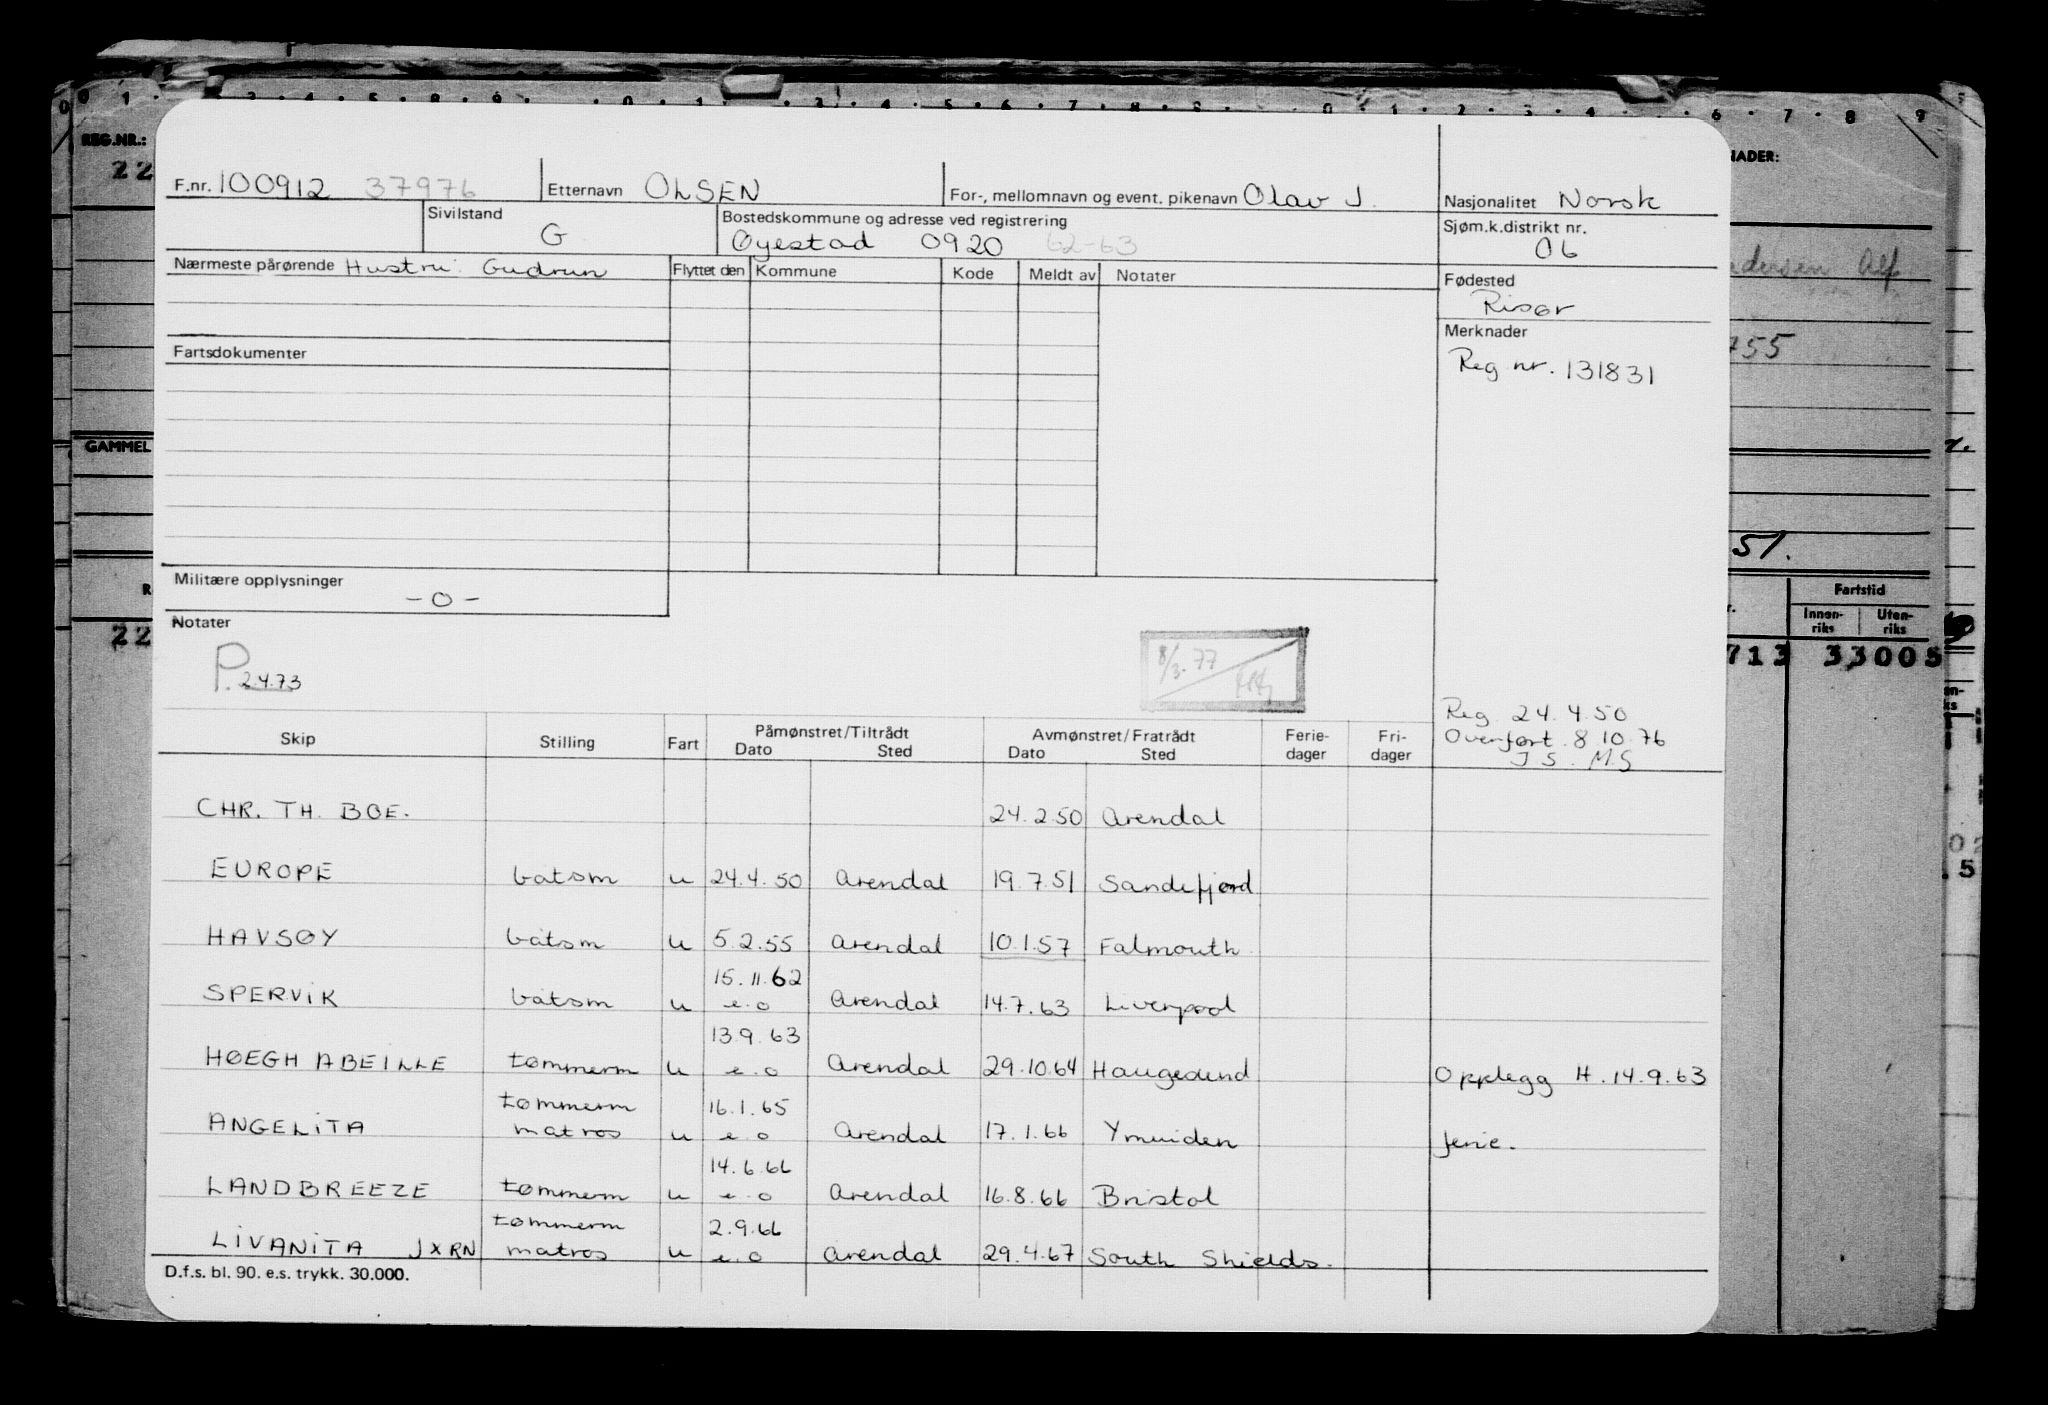 REG.NR.:
22
F.nr. 100912 37976 Etternavn OLSEN For-, mellomnavn og event. pikenavn Olav J. Nasjonalitet Norsk
Sivilstand G Bostedskommune og adresse ved registrering Sjøm.k.distrikt nr.
Øyestad 0920 62-63 06
Nærmeste pårørende Hustru: Gudrun Flyttet den Kommune Kode Meldt av Notater Fødested
Risør
Merknader
Fartsdokumenter Reg nr. 131831
GAMMEL
Militære opplysninger
-0-
Notater
P. 2.4.73
8/3.77
Reg. 24.4.50
Overført. 8.10.76
J S. M.S
Skip Stilling Fart Påmønstret/Tiltrådt Avmønstret/Fratrådt Ferie- Fri-
Dato Sted Dato Sted dager dager
CHR. TH. BOE. 24.2.50 Arendal
EUROPE båtsm u 24.4.50 Arendal 19.7.51 Sandefjord
HAVSØY båtsm u 5.2.55 Arendal 10.1.57 Falmouth
15.11.62
SPERVIK båtsm u e.o Arendal 14.7.63 Liverpool
13.9.63
HØEGH ABEILLE tømmerm u e.o Arendal 29.10.64 Haugesund Opplegg H.14.9.63
tømmerm 16.1.65
ANGELITA matros u e.o Arendal 17.1.66 Ymuiden ferie.
14.6.66
LANDBREEZE tømmerm u e.o Arendal 16.8.66 Bristol
tømmerm 2.9.66
LIVANITA JXRN matros u e.o Arendal 29.4.67 South Shields.
D.f.s. bl. 90. e.s. trykk. 30.000.
NADER:
Alf
755
51.
Fartstid
Innen-riks Uten-riks
713 33005